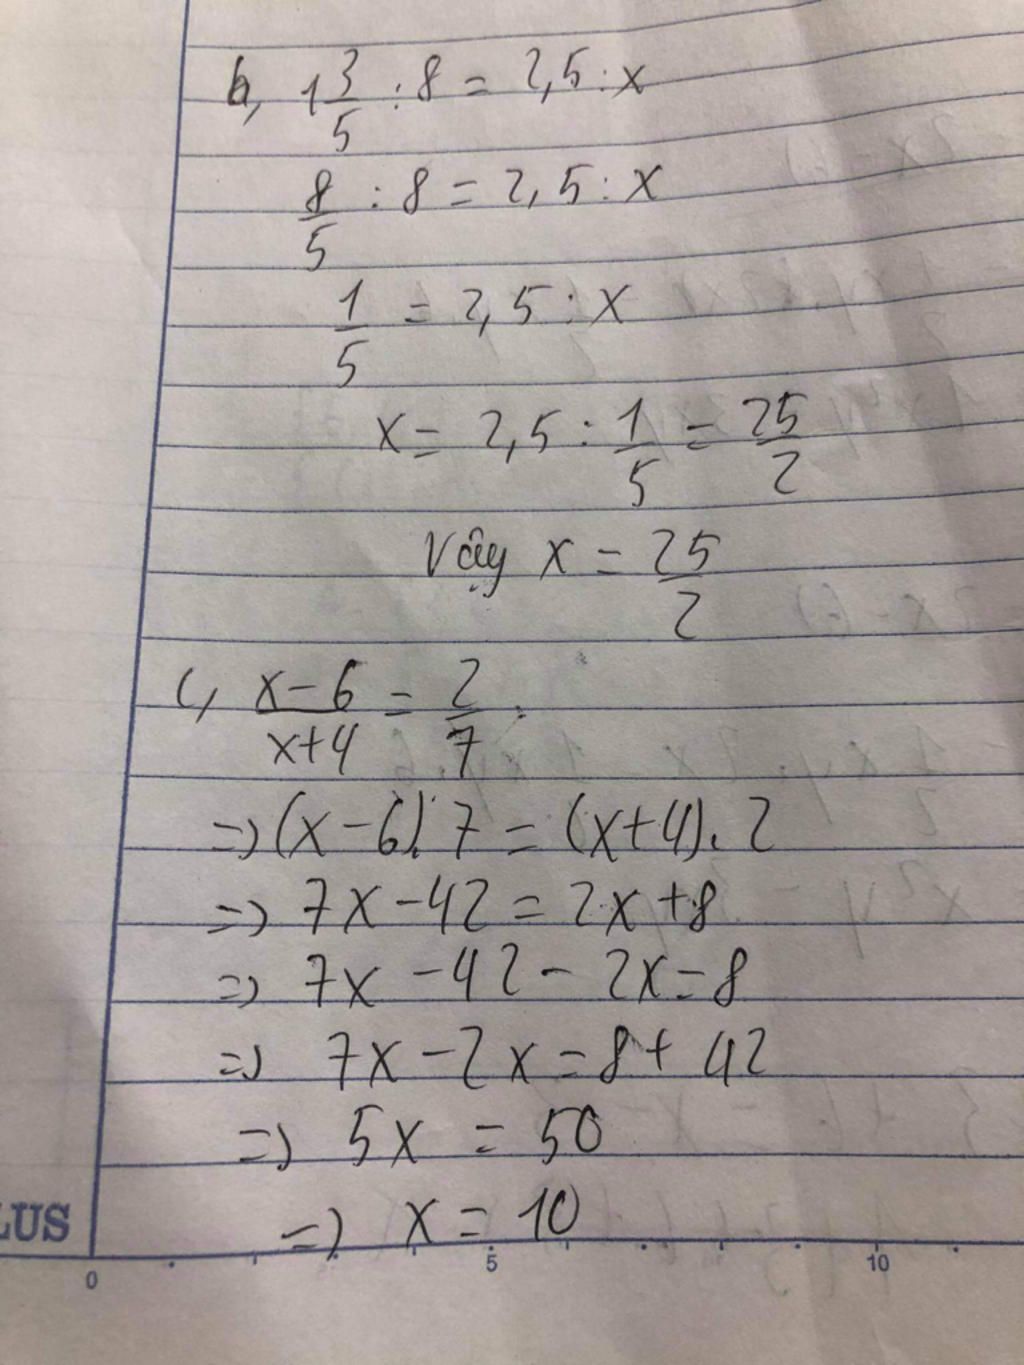 b, 1 3/5 : 8 = 2,5 : x
8/5 : 8 = 2,5 : x
1/5 = 2,5 : x
x = 2,5 : 1/5 = 25/2
Vậy x = 25/2
c, (x-6)/(x+4) = 2/7
=> (x-6).7 = (x+4).2
=> 7x-42 = 2x+8
=> 7x-42-2x=8
=> 7x-2x=8+42
=> 5x = 50
=> x = 10
LUS
0 5 10